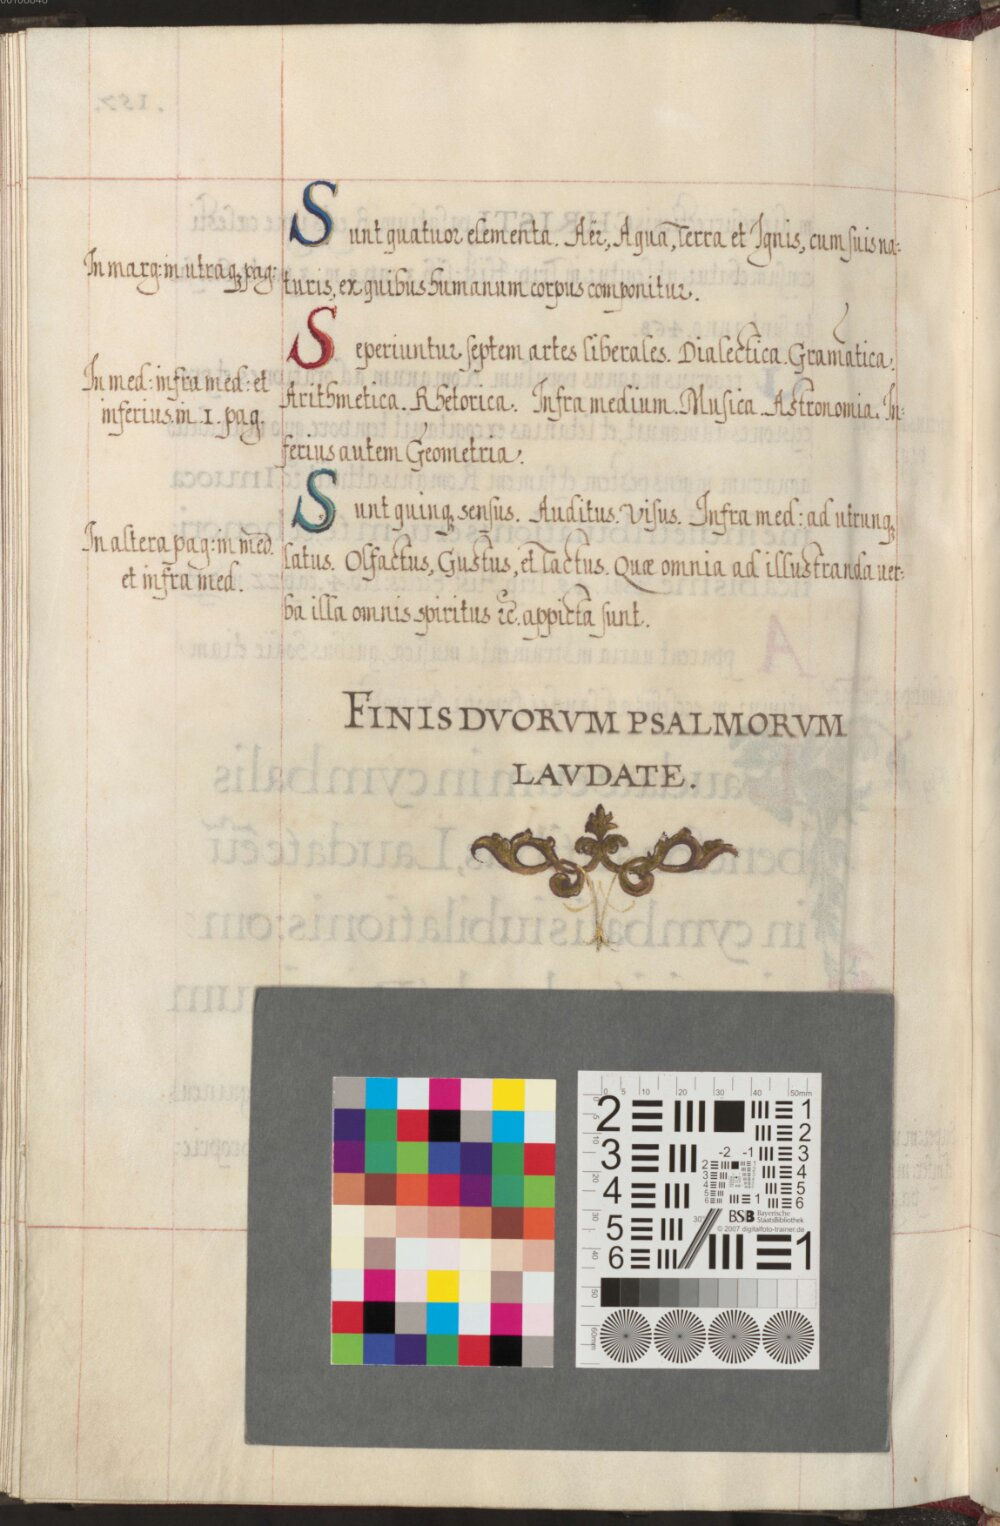 Sunt quatuor elementa. Aër, Aqua, Terra et Ignis, cum suis na:
In marg: in utraq pag:
turis, ex quibus humanum corpus componitur.
Seperiuntur septem artes liberales. Dialectica. Gramatica.
In med: infra med: et
inferius. in .1. pag.
Arithmetica. Rhetorica. Infra medium. Musica. Astronomia. In:
ferius autem Geometria.
Sunt quinq sensus. Auditus. Visus. Infra med: ad utrunq
In altera pag: in med.
et infra med.
latus. Olfactus, Gustus, et Tactus. Quæ omnia ad illustranda uer:
ba illa omnis spiritus &c. appicta sunt.
FINIS DVORVM PSALMORVM
LAVDATE.
0 5 10 20 30 40 50mm
2 1
2
3 -2 -1 3
4 4
5
6
5 BSB Bayerische StaatsBibliothek
© 2007 digitalfoto-trainer.de
6 1